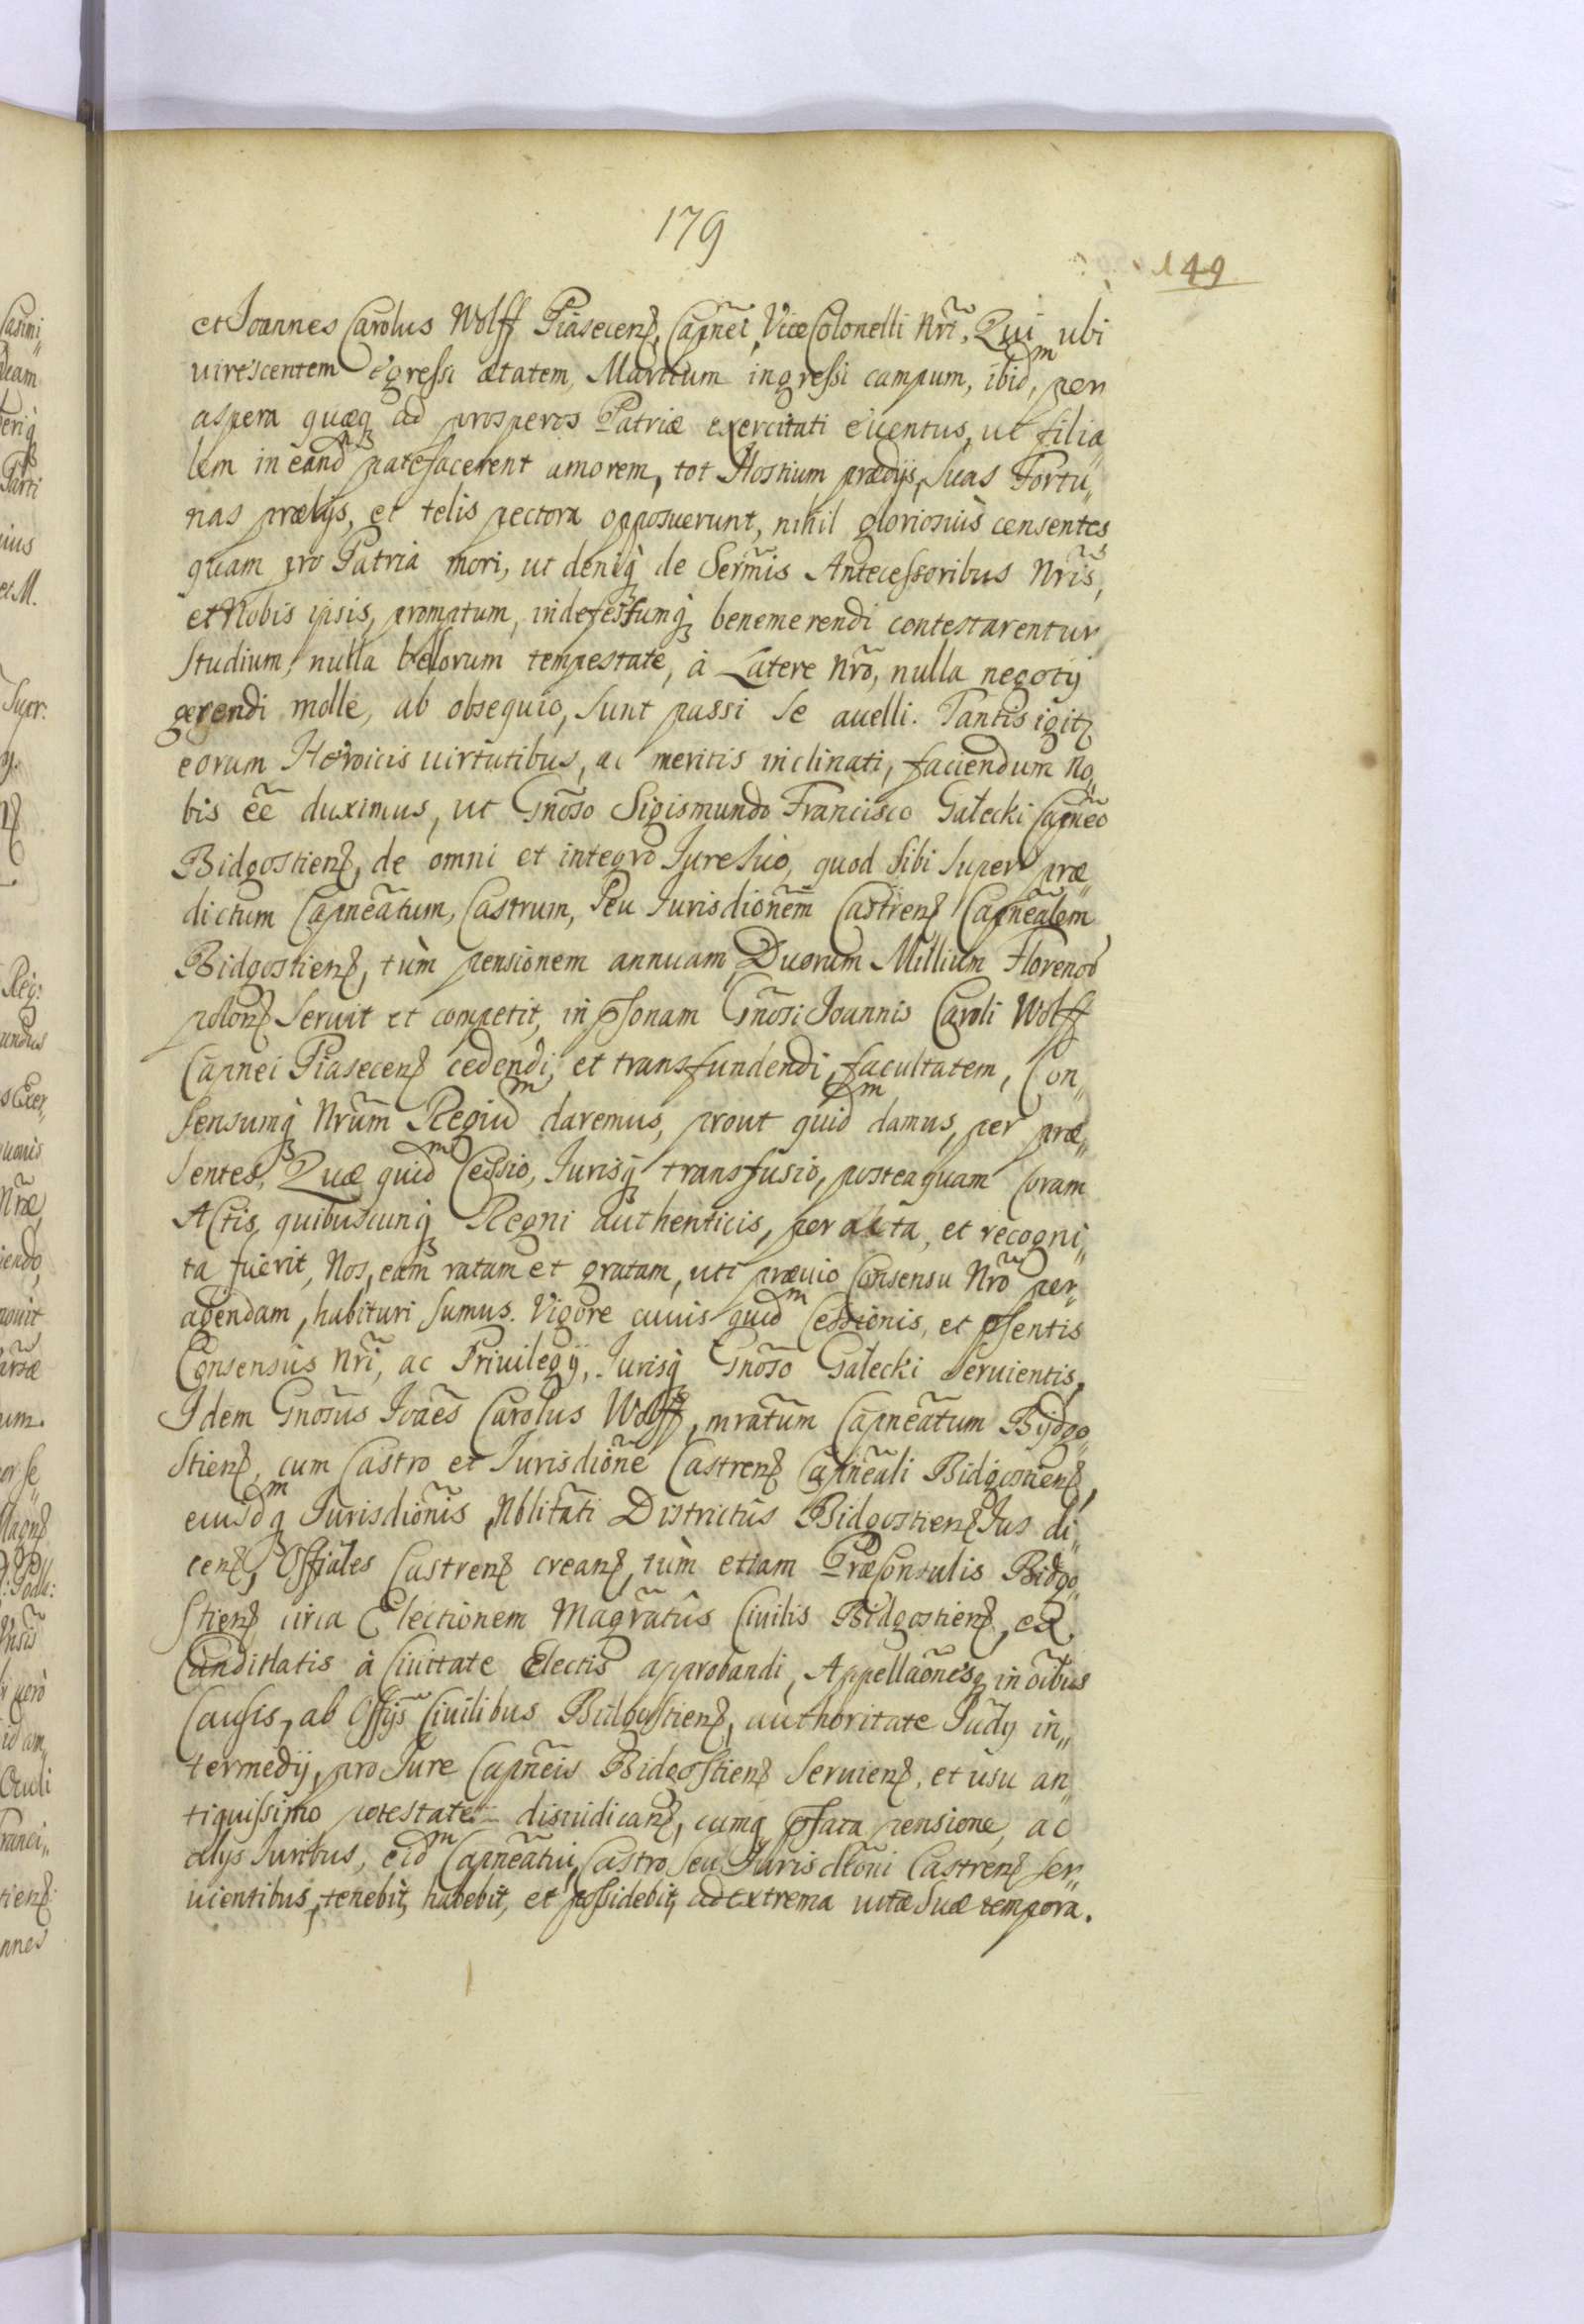 179
149
et Joannes Carolus Wolff Piasecenß, Capñei, Vice Colonelli Nrĩ. Qui ubi
virescentem egressi ætatem, Martium ingressi campum, ibidm, per
aspera quæq ad prosperos Patriæ exercitati eventus, ut filia„
lem in eand patefacerent amorem, tot Hostium prædijs, suas Fortu„
nas prælijs, et telis pectora opposuerunt, nihil gloriosius censentes
quam pro Patria mori, ut deniq̀ de Serm̃is Antecessoribus Nrĩs,
et Nobis ipsis, promptum, indefessumq̀ benemerendi contestarentur
studium, nulla bellorum tempestate, à Latere Nrõ, nulla negotij
gerendi molle, ab obsequio, sunt passi se avelli. Tantis igitʒ
eorum Heroicis virtutibus, ac meritis inclinati, faciendum No„
bis eẽ duximus, ut Gnõso Sigismundo Francisco Gałecki Capñeo
Bidgostienß, de omni et integro Jure suo, quod sibi super præ„
dictum Capneãtum, Castrum, seu Jurisdionẽm Castrenß Capneãlem
Bidgostienß, tùm pensionem annuam Duorum Millium Floreno
polonß servit et competit, in psonam Gnõsi Joannis Caroli Wolff
Capnei Piasecenß cedendi, et transfundendi, facultatem, Con„
sensumq̀ Nrũm Regium daremus, prout quidm damus, per præ„
sentes. Quæ quidm Cessio, Jurisq̀ transfusio, posteaquam Coram
Actis, quibuscunq̀ Regni authenticis, peracta, et recogni„
ta fuerit, Nos, eam ratam et gratam, uti prævio Consensu Nrõ per„
agendam, habituri sumus. Vigore cuius quidm Cessionis, et psentis
Consensus Nrĩ, ac Privilegij, Jurisq̀ Gnõso Gałecki servientis,
Idem Gnosũs Joaẽs Carolus Wolff, mratum Capneãtum Bydgo„
stienß, cum Castro et Jurisdiõne Castrenß Capneãli Bidgostienß,
eiusdmq Jurisdiõnis, Nblitãti Districtûs Bidgostienß Jus di„
cenß, Offiãles Castrenß creanß, tùm etiam PræConsulis Bidgo„
stienß circa Electionem Magrãtûs Civilis Bidgostienß, ex
Candidatis à Civitate Electis approbandi, Appellaõnesq in oĩbus
Causis, ab Offijs Civilibus Bidgostienß, authoritate Judij in„
termedij, pro Jure Capneĩs Bidgostienß servienß, et usu an„
tiquissimo potestate dijudicanß, cumq pfata pensione, ac
alijs Juribus, eidm Capneãtui, Castro seu Jurisdĩoni Castrenß ser„
vientibus, tenebit, habebit, et possidebit, ad extrema vitæ suæ tempora.